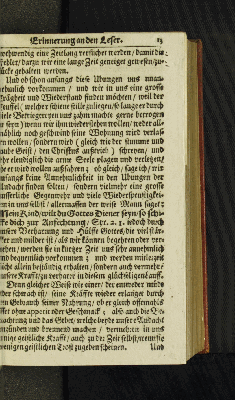 Erinnerung an den Leser. 13
nothwendig eine Zeitlang versuchet werden / damit die
Fehler / darzu wir eine lange Zeit geneiget gewesen / zu-
rücke gehalten werden.
Und ob schon anfangs diese Übungen uns unan-
nehmlich vorkommen / und wir in uns eine gross
Trägheit und Wiederstand finden möchten / weil der
Teuffel / welcher seine stille zufliegen / so lang er durch
viele Betriegereyen uns zahm machte gerne betrogen
seyn) wenn wir ihm wiederstehen wollen / weder all-
mählich noch geschwind seine Wohnung wird verlas-
sen wollen / sondern wird (gleich wie der stumme und
taube Geist / den Christus außtrieb) schreyen / und
elendiglich die arme Seele plagen und verletzen /
wird wollen außfahren; ob gleich / sage ich / wir
anfangs keine Annehmlichkeit in den Übungen der
Andacht finden solten / sondern vielmehr eine grosse
innerliche Gegenwehr und viele Wiederspenstigkeit
in uns selbst / allermassen der weise Mann saget:
Mein Kind / wilt du Gottes Diener seyn / so schi-
cke dich zur Anfechtung / Syr. 2. 1. so doch durch
unsere Verharrung und Hülffe Gottes / die viel stär-
cker und milder ist / als wir können begehren oder ver-
stehen / werden sie in kurtzer Zeit uns sehr annehmlich
und bequemlich vorkommen; und werden mitler zeit
nicht allein beständig erhalten / sondern auch vermehrt
unsere Krafft / zu verharren in diesem glückseligen
Denn gleicher Weise wie einer / der entweder müde
oder schwach ist / seine Kräffte wieder erlanget durch
den Gebrauch seiner Nahrung / ob er gleich offtermahls
isset ohne appetit oder Geschmack; also auch die
und das Gebet / welche beyde unsere Andacht
anzünden und brennend machen / vermehren in uns
einige geistliche Krafft / auch zu der Zeit selbst /
wenigen geistlichen Trost zugeben scheinen. Und